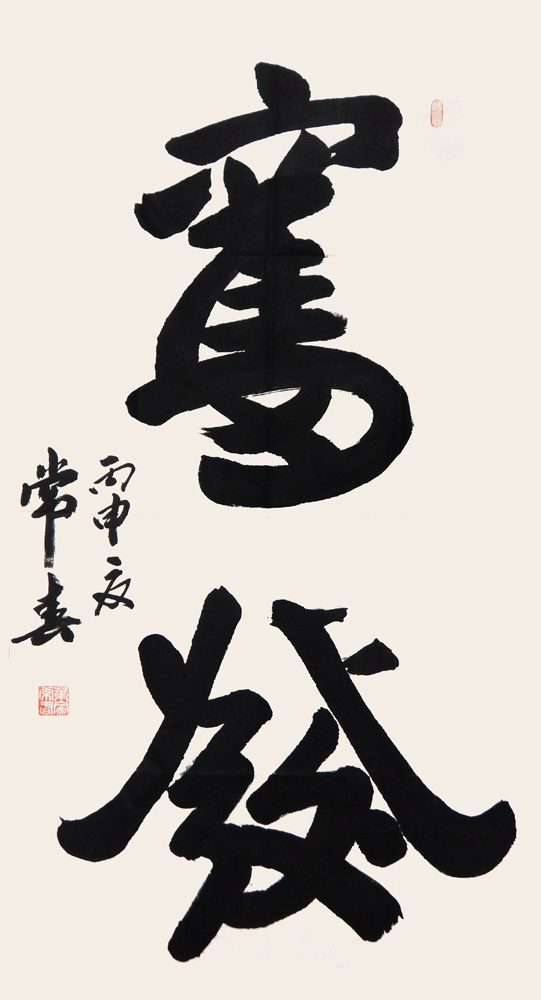 奮發
丙申夏
常春